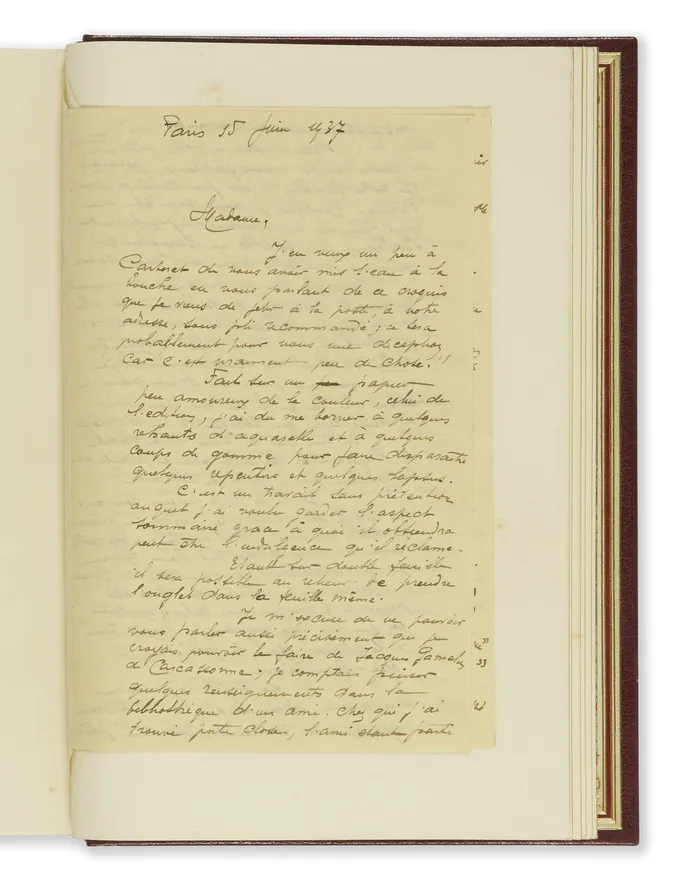 Paris 15 Juin 1937
Madame,
J'en veux un peu à
Carteret de vous avoir mis l'eau à la
bouche en vous parlant de ce croquis
que je viens de jeter à la poste, à votre
adresse, sous pli recommandé; ce sera
probablement pour vous une déception
car c'est vraiment peu de chose!!
Fait sur un papier
peu amoureux de la couleur, celui de
l'edition, j'ai du me borner à quelques
rehauts d'aquarelle et à quelques
coups de gomme pour faire disparaître
quelques repentirs et quelques lapsus.
C'est un travail sans prétention
auquel j'ai voulu garder l'aspect
sommaire grace à quoi il obtiendra
peut être l'indulgence qu'il réclame.
Etant sur double feuille
il sera possible au relieur de prendre
l'onglet dans la feuille même.
Je m'excuse de ne pouvoir
vous parler aussi précisément que je
croyais pouvoir le faire de Jacques Gamelin
de Carcassonne; je comptais puiser
quelques renseignements dans la
bibliothèque d'un ami chez qui j'ai
trouvé porte close, l'ami étant parti